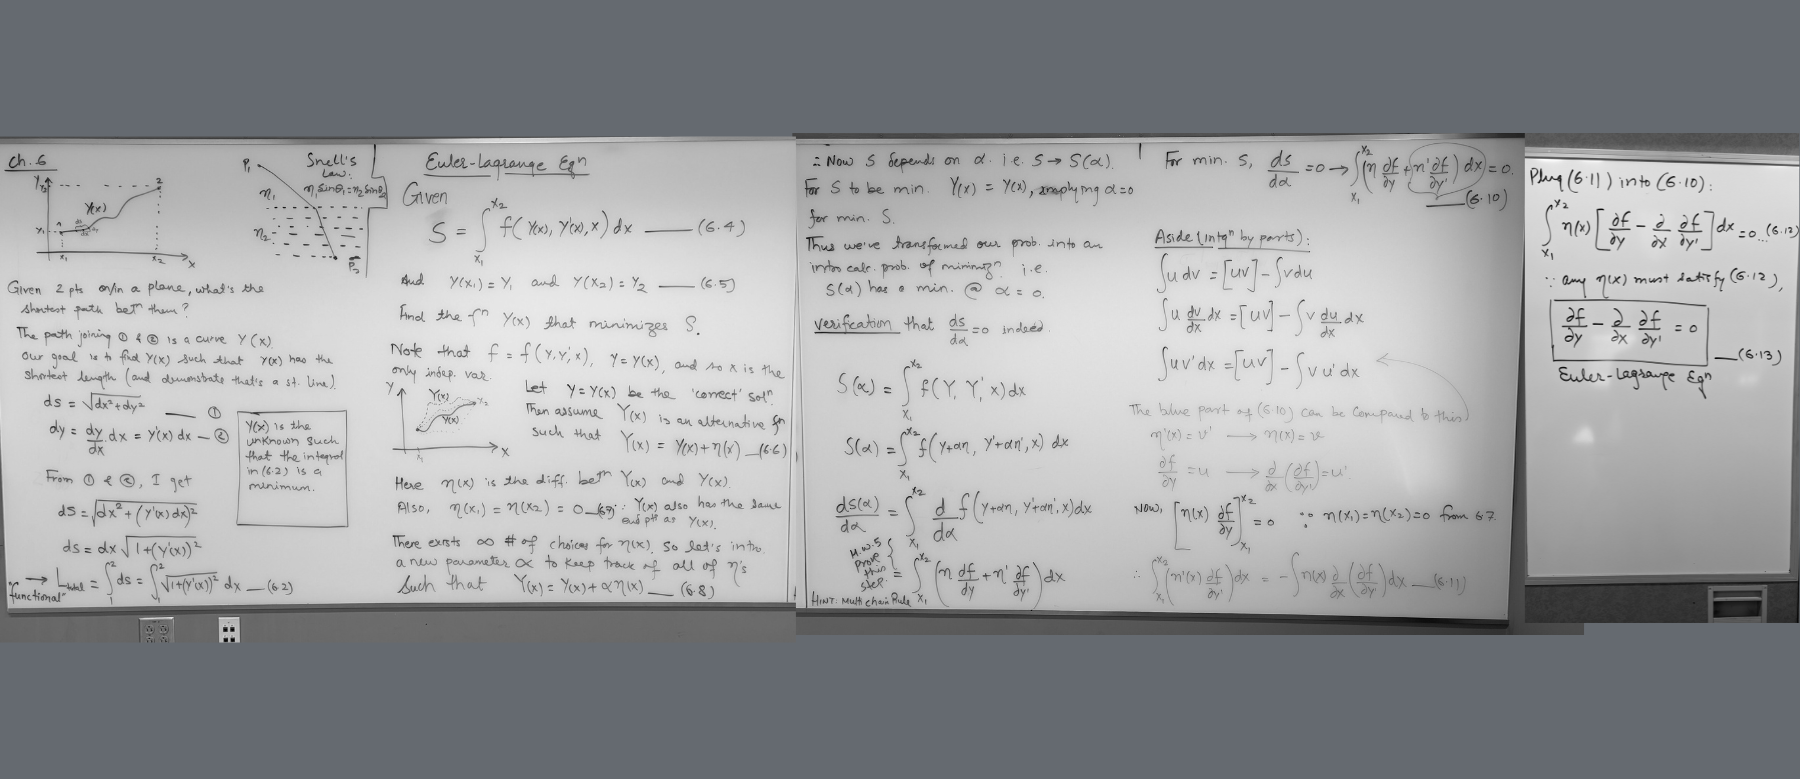 Ch. 6
Y
Y₂
2
Y(x)
Y₁
x₁
x₂
x
P₁
Snell's
Law:
η₁ sinθ₁ = η₂ sinθ₂
η₁
η₂
P₂
Given 2 pts on/in a plane, what's the
shortest path betⁿ them?
The path joining ① & ② is a curve Y(x).
Our goal is to find Y(x) such that Y(x) has the
shortest length (and demonstrate that's a st. line).
ds = √dx²+dy² —— ①
dy = dy/dx dx = Y'(x) dx — ②
From ① & ②, I get
ds = √dx² + (Y'(x) dx)²
ds = dx √1+(Y'(x))²
"functional" → L_total = ∫₁² ds = ∫₁² √1+(Y'(x))² dx — (6.2)
Y(x) is the
unknown such
that the integral
in (6.2) is a
minimum.
Euler-Lagrange Eqⁿ
Given
S = ∫_{x₁}^{x₂} f(Y(x), Y'(x), x) dx —— (6.4)
And Y(x₁) = Y₁ and Y(x₂) = Y₂ —— (6.5)
Find the fⁿ Y(x) that minimizes S.
Note that f = f(Y, Y', x), Y = Y(x), and so x is the
only indep. var.
Y
Y(x)
x₂
Y(x)
x₁
x
Let Y = Y(x) be the 'correct' solⁿ
Then assume Y(x) is an alternative fn
such that Y(x) = Y(x) + η(x) — (6.6)
Here η(x) is the diff. betⁿ Y(x) and Y(x).
Also, η(x₁) = η(x₂) = 0 —(6.7) ∵ Y(x) also has the same
end pts as Y(x).
There exists ∞ # of choices for η(x). So let's intro.
a new parameter α to keep track of all of η's
Such that Y(x) = Y(x) + α η(x) —— (6.8)
∴ Now S depends on α. i.e. S → S(α).
For S to be min. Y(x) = Y(x), implying α = 0
for min. S.
Thus we've transformed our prob. into an
intro calc. prob. of minimizⁿ. i.e.
S(α) has a min. @ α = 0.
Verification that ds/dα = 0 indeed.
S(α) = ∫_{x₁}^{x₂} f(Y, Y', x) dx
S(α) = ∫_{x₁}^{x₂} f(Y+αη, Y'+αη', x) dx
dS(α)/dα = ∫_{x₁}^{x₂} d/dα f(Y+αη, Y'+αη', x) dx
H.W. 5
Prove
this
step.
= ∫_{x₁}^{x₂} (η ∂f/∂y + η' ∂f/∂y') dx
HINT: Multi chain Rule
For min. S, ds/dα = 0 → ∫_{x₁}^{x₂} (η ∂f/∂y + η' ∂f/∂y') dx = 0.
—— (6.10)
Aside (intgⁿ by parts):
∫u dv = [uv] - ∫v du
∫u dv/dx dx = [uv] - ∫v du/dx dx
∫uv' dx = [uv] - ∫v u' dx
The blue part of (6.10) can be compared to this
η'(x) = v' → η(x) = v
∂f/∂y' = u → ∂/∂x (∂f/∂y') = u'.
Now, [η(x) ∂f/∂y']_{x₁}^{x₂} = 0 ∵ η(x₁) = η(x₂) = 0 from 6.7.
∴ ∫_{x₁}^{x₂} (η'(x) ∂f/∂y') dx = -∫η(x) ∂/∂x (∂f/∂y') dx —— (6.11)
Plug (6.11) into (6.10):
∫_{x₁}^{x₂} η(x) [∂f/∂y - ∂/∂x ∂f/∂y'] dx = 0 ... (6.12)
∵ any η(x) must satisfy (6.12),
∂f/∂y - ∂/∂x ∂f/∂y' = 0
—— (6.13)
Euler-Lagrange Eqⁿ